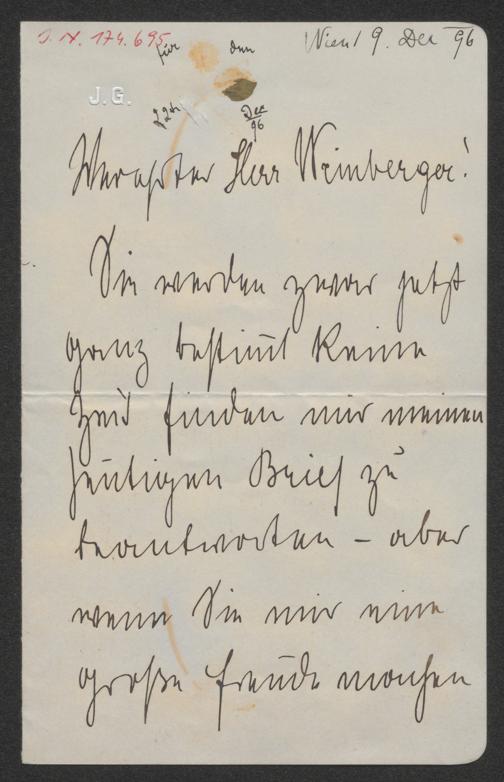 J. N. 174.695
Wien 9. Dec 96
für den
J.G.
22t Dec
96
Verehrter Herr Weinberger!
Sie werden zwar jetzt
ganz bestimt keine
Zeit finden mir meinen
heutigen Brief zu
beantworten – aber
wenn Sie mir eine
große Freude machen